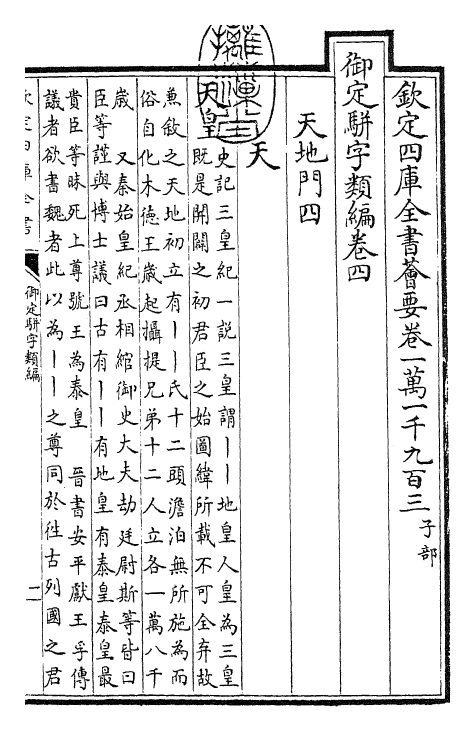 欽定四庫全書薈要卷一萬一千九百三 子部
御定駢字類編卷四
天地門四
天
天皇 史記三皇紀一說三皇謂丨丨地皇人皇為三皇
既是開闢之初君臣之始圖緯所載不可全棄故
兼敘之天地初立有丨丨氏十二頭澹泊無所施為而
俗自化木徳王歲起攝提兄弟十二人立各一萬八千
歲 又秦始皇紀丞相綰御史大夫劫廷尉斯等皆曰
臣等謹與博士議曰古有丨丨有地皇有泰皇泰皇最
貴臣等昧死上尊號王為泰皇 晉書安平獻王孚傳
議者欲書魏者此以為丨丨之尊同於徃古列國之君
欽定四庫全書
御定駢字類編